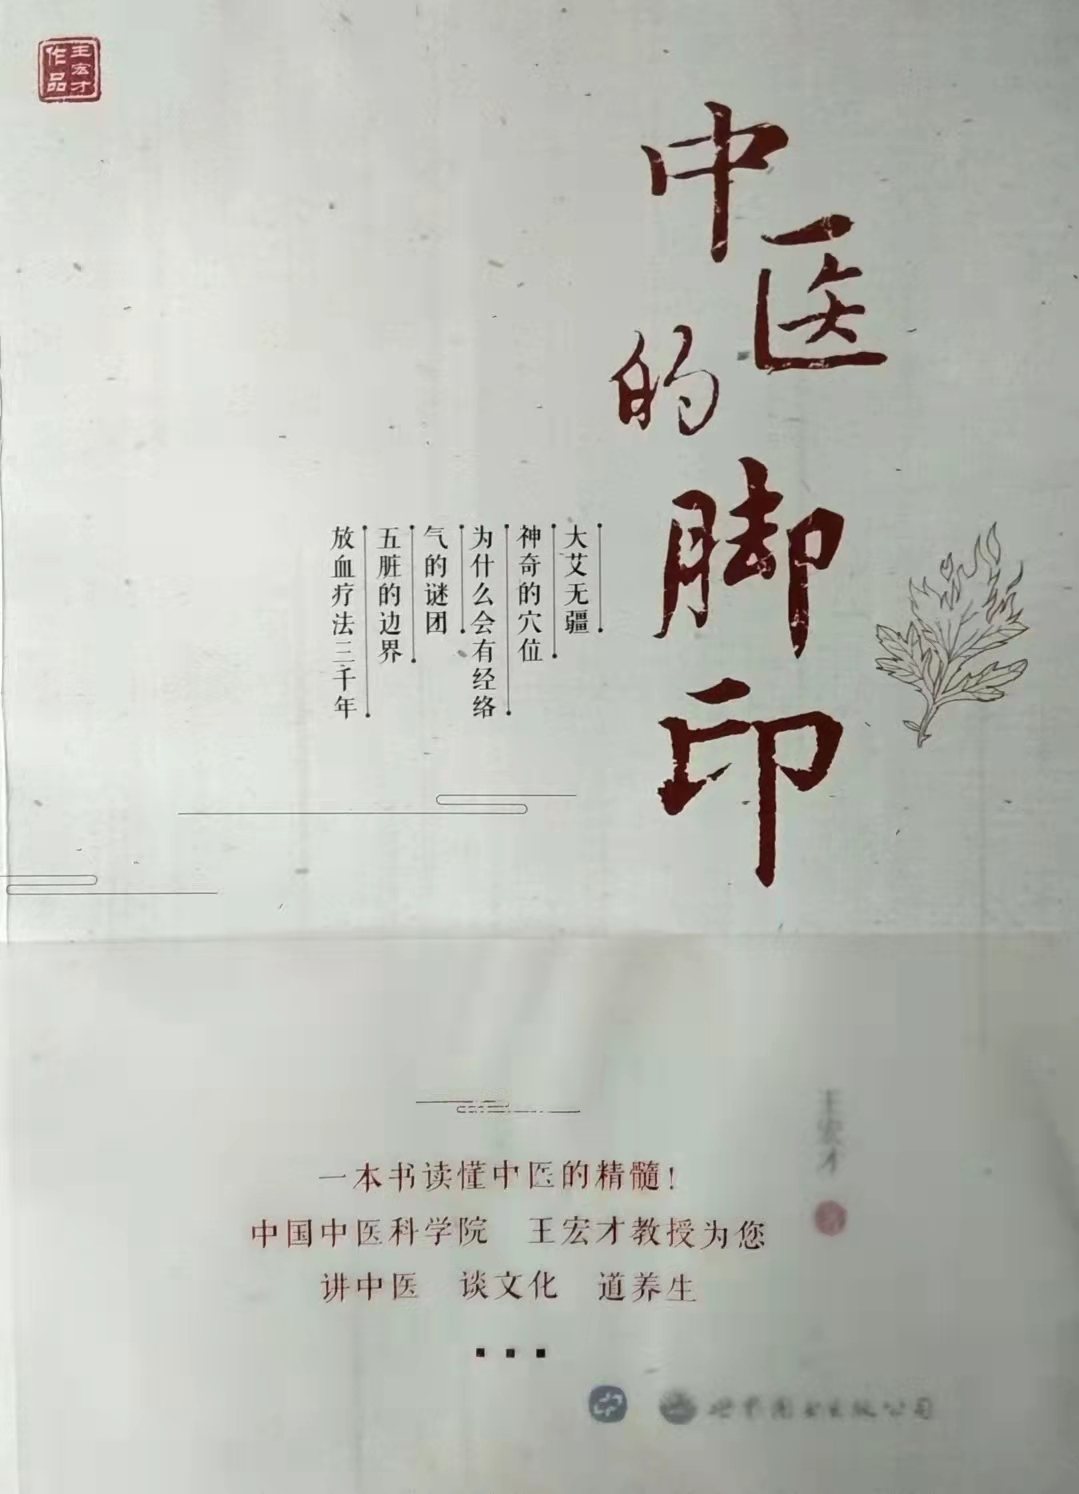 王宏才
作品
中医的脚印
大艾无疆
神奇的穴位
为什么会有经络
气的谜团
五脏的边界
放血疗法三千年
王宏才
著
一本书读懂中医的精髓！
中国中医科学院 王宏才教授为您
讲中医 谈文化 道养生
世界图书出版公司